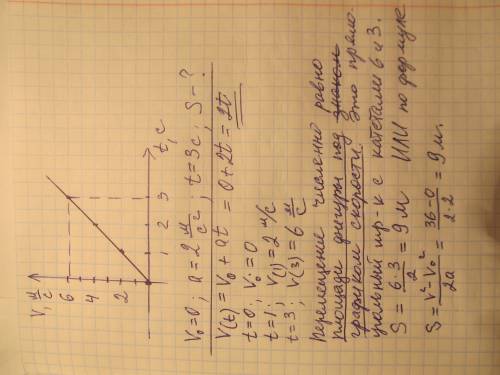 V, м/с
6
4
2
1 2 3 t, c
V₀=0; a = 2 м/c²; t=3c; S-?
V(t) = V₀ + at = 0 + 2t = 2t
t=0; V₀=0
t=1; V(1) = 2 м/с
t=3; V(3) = 6 м/с
Перемещение численно равно
площади фигуры под
графиком скорости. Это прямо-
угольный тр-к с катетами 6 и 3.
S = 6·3/2 = 9 м ИЛИ по формуле
S = V²-V₀²/2a = 36-0/2·2 = 9 м.